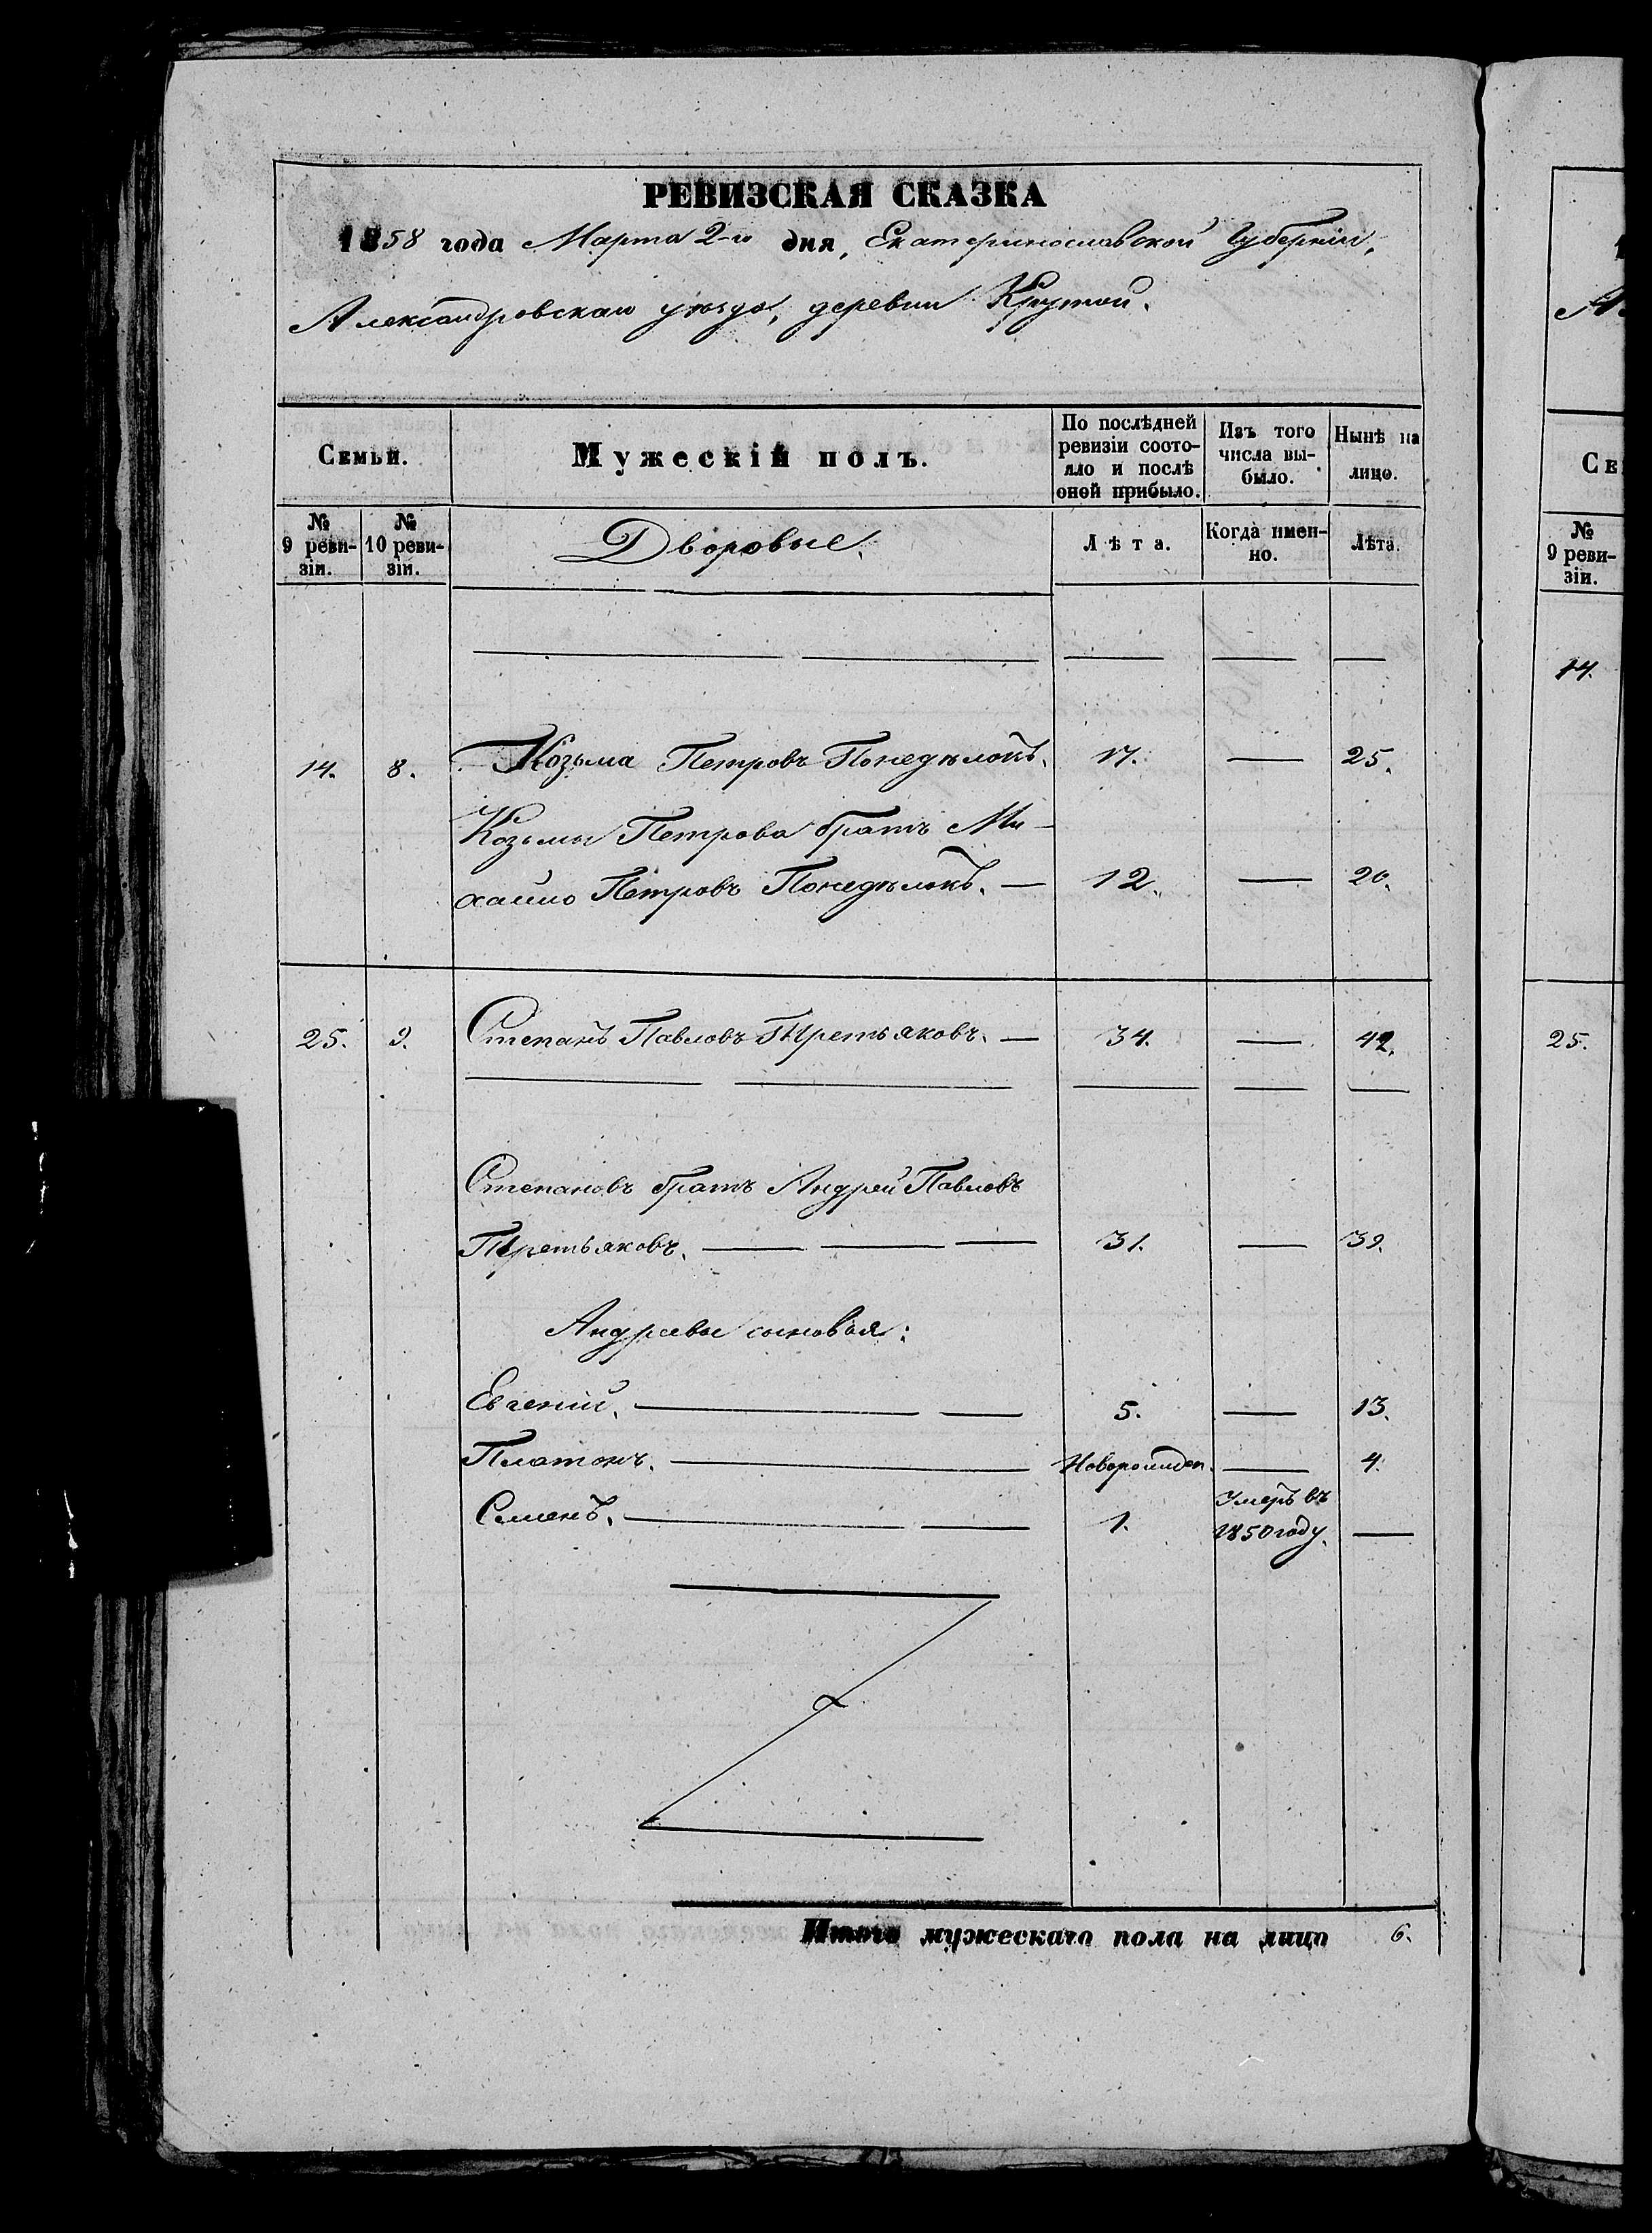 РЕВИЗСКАЯ СКАЗКА
1858 года Марта 2-го дня, Екатеринославской Губерніи,
Александровскаго уѣзда, деревни Крутой.
Семьи. Мужескій полъ. По послѣдней ревизіи состояло и послѣ оной прибыло. Изъ того числа выбыло. Нынѣ на лицо.
№ 9 ревизіи. № 10 ревизіи. Дворовые. Лѣта. Когда именно. Лѣта.
14. 8. Козьма Петровъ Понедѣлокъ. 17. — 25.
Козьмы Петрова братъ Ми-
хайло Петровъ Понедѣлокъ. — 12. — 20.
25. 9. Степанъ Павловъ Третьяковъ. — 34. — 42.
Степановъ братъ Андрей Павловъ
Третьяковъ. — 31. — 39.
Андреевы сыновья:
Евгеній. — 5. — 13.
Платонъ. — Новорожден. — 4.
Семенъ. — 1. Умеръ въ
1850 году. —
Итого мужескаго пола на лицо 6.
Се
№
9 реви-
зіи.
14.
25.